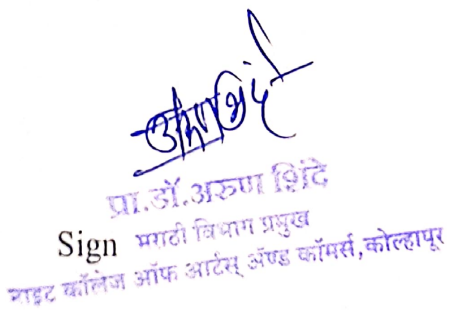 अरुण शिंदे
प्रा.डॉ.अरुण शिंदे
Sign मराठी विभाग प्रमुख
कॉलेज ऑफ आर्टस् ॲण्ड कॉमर्स,कोल्हापूर